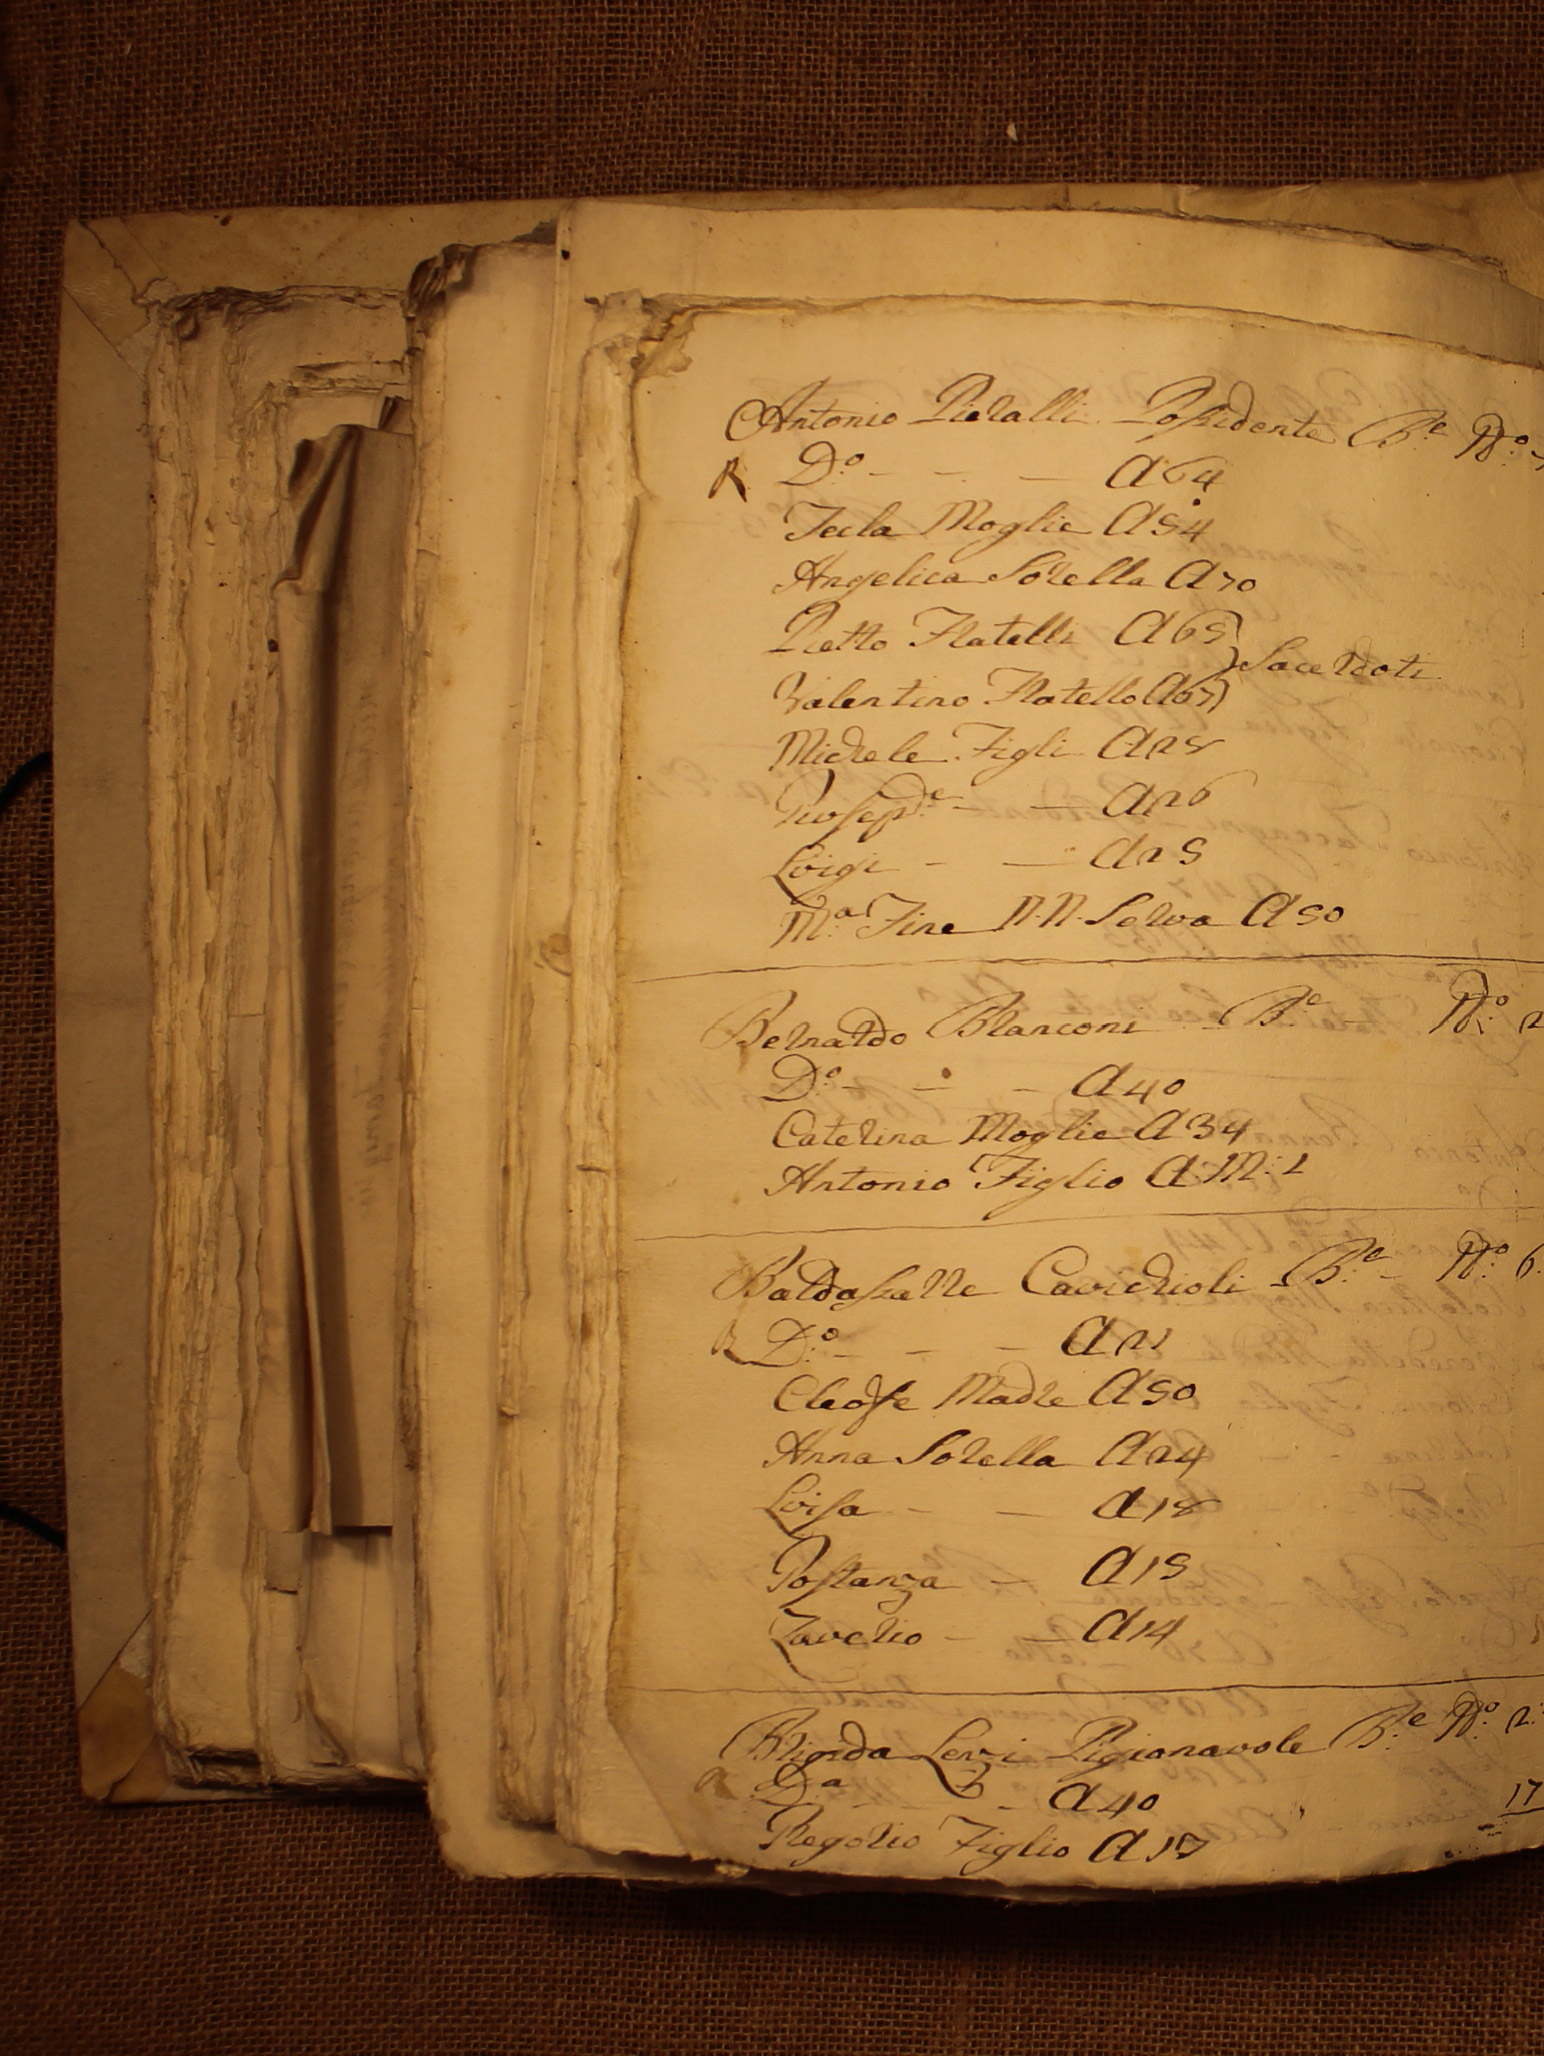 Antonio Pieralli Possidente B.e N.o
R D.o - - - A 64
Tecla Moglie A 54
Angelica Sorella A 70
Pietro Fratelli A 65 } Sacerdoti
Valentino Fratello A 67 }
Michele Figli A 28
Giusep.e - - A 26
Luigi - - A 25
M.a Fine N.N. Serva A 50
Bernardo Branconi B.e - N.o 2
D.o - - - A 40
Caterina Moglie A 34
Antonio Figlio A M: 1
Baldassarre Cavichioli - B.e - N.o 6.
R D.o - - - A 21
Cleofe Madre A 50
Anna Sorella A 24
Luisa - - A 18
Costanza - A 15
Saverio - - A 14
Brigida Pigionavole B.e N.o 2.
R D.a - A 40 17
Figlio A 17